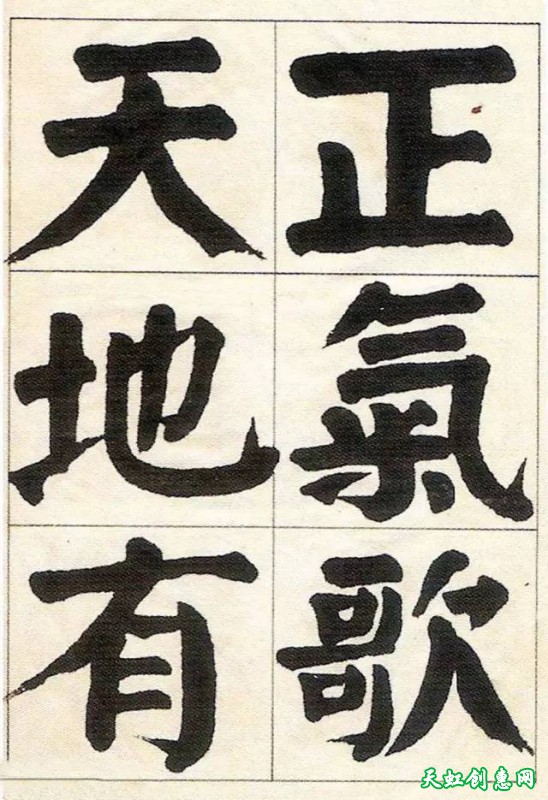 正氣歌
天地有
天虹创惠网